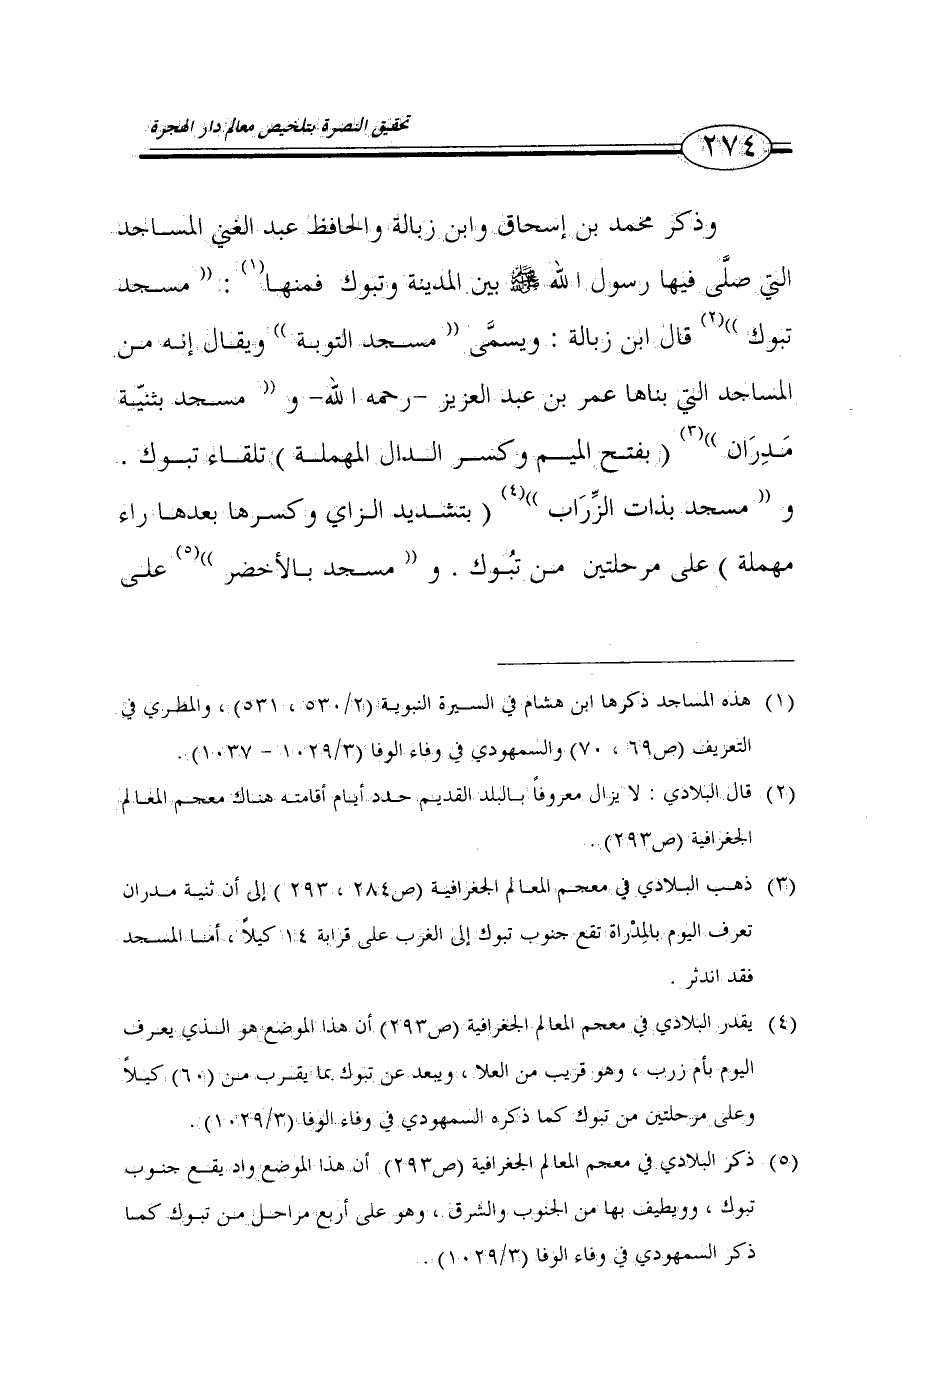 تحقيق النصرة بتلخيص معالم دار الهجرة
٢٧٤
وذكر محمد بن إسحاق وابن زبالة والحافظ عبد الغني المساجد
التي صلَّى فيها رسول الله ﷺ بين المدينة وتبوك فمنها(١) : (( مسجد
تبوك ))(٢) قال ابن زبالة : ويسمَّى (( مسجد التوبة )) ويقال إنه من
المساجد التي بناها عمر بن عبد العزيز -رحمه الله- و (( مسجد بثنيّة
مَدِرَان ))(٣) ( بفتح الميم وكسر الدال المهملة ) تلقاء تبوك .
و (( مسجد بذات الزِّرَاب ))(٤) ( بتشديد الزاي وكسرها بعدها راء
مهملة ) على مرحلتين من تبُوك . و (( مسجد بالأخضر ))(٥) على
(١) هذه المساجد ذكرها ابن هشام في السيرة النبوية (٥٣٠/٢ ، ٥٣١) ، والمطري في
التعريف (ص٦٩ ، ٧٠) والسمهودي في وفاء الوفا (١٠٢٩/٣ - ١٠٣٧) .
(٢) قال البلادي : لا يزال معروفاً بالبلد القديم حدد أيام أقامته هناك معجم المعالم
الجغرافية (ص٢٩٣) .
(٣) ذهب البلادي في معجم المعالم الجغرافية (ص٢٨٤ ، ٢٩٣ ) إلى أن ثنية مدران
تعرف اليوم بالمِدْراة تقع جنوب تبوك إلى الغرب على قرابة ١٤ كيلاً ، أما المسجد
فقد اندثر .
(٤) يقدر البلادي في معجم المعالم الجغرافية (ص٢٩٣) أن هذا الموضع هو الذي يعرف
اليوم بأم زرب ، وهو قريب من العلا ، ويبعد عن تبوك بما يقرب من (٦٠) كيلاً
وعلى مرحلتين من تبوك كما ذكره السمهودي في وفاء الوفا (١٠٢٩/٣) .
(٥) ذكر البلادي في معجم المعالم الجغرافية (ص٢٩٣) أن هذا الموضع واد يقع جنوب
تبوك ، وويطيف بها من الجنوب والشرق ، وهو على أربع مراحل من تبوك كما
ذكر السمهودي في وفاء الوفا (١٠٢٩/٣) .